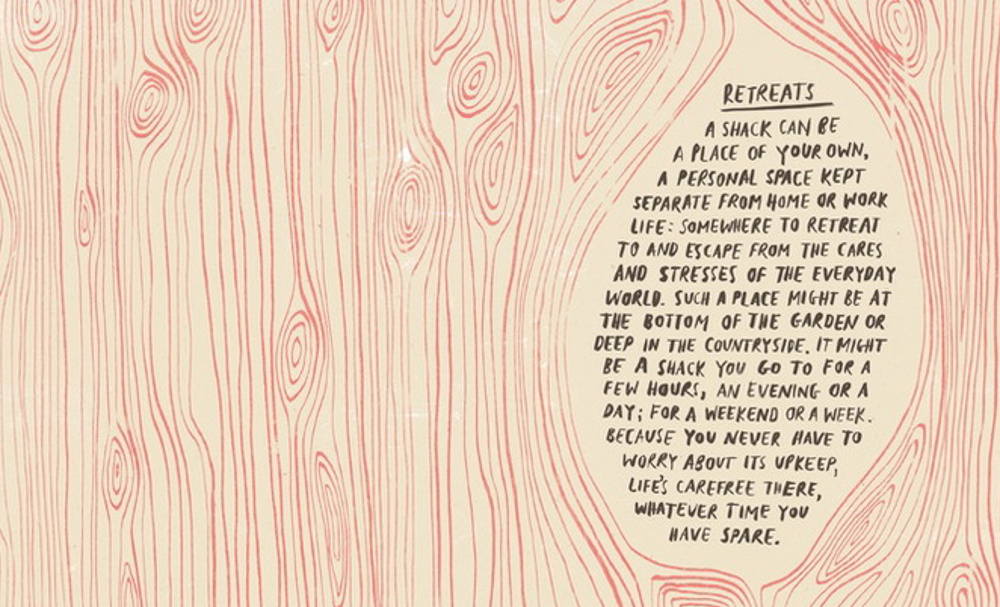 RETREATS
A SHACK CAN BE
A PLACE OF YOUR OWN,
A PERSONAL SPACE KEPT
SEPARATE FROM HOME OR WORK
LIFE: SOMEWHERE TO RETREAT
TO AND ESCAPE FROM THE CARES
AND STRESSES OF THE EVERYDAY
WORLD. SUCH A PLACE MIGHT BE AT
THE BOTTOM OF THE GARDEN OR
DEEP IN THE COUNTRYSIDE. IT MIGHT
BE A SHACK YOU GO TO FOR A
FEW HOURS, AN EVENING OR A
DAY; FOR A WEEKEND OR A WEEK.
BECAUSE YOU NEVER HAVE TO
WORRY ABOUT ITS UPKEEP,
LIFE'S CAREFREE THERE,
WHATEVER TIME YOU
HAVE SPARE.